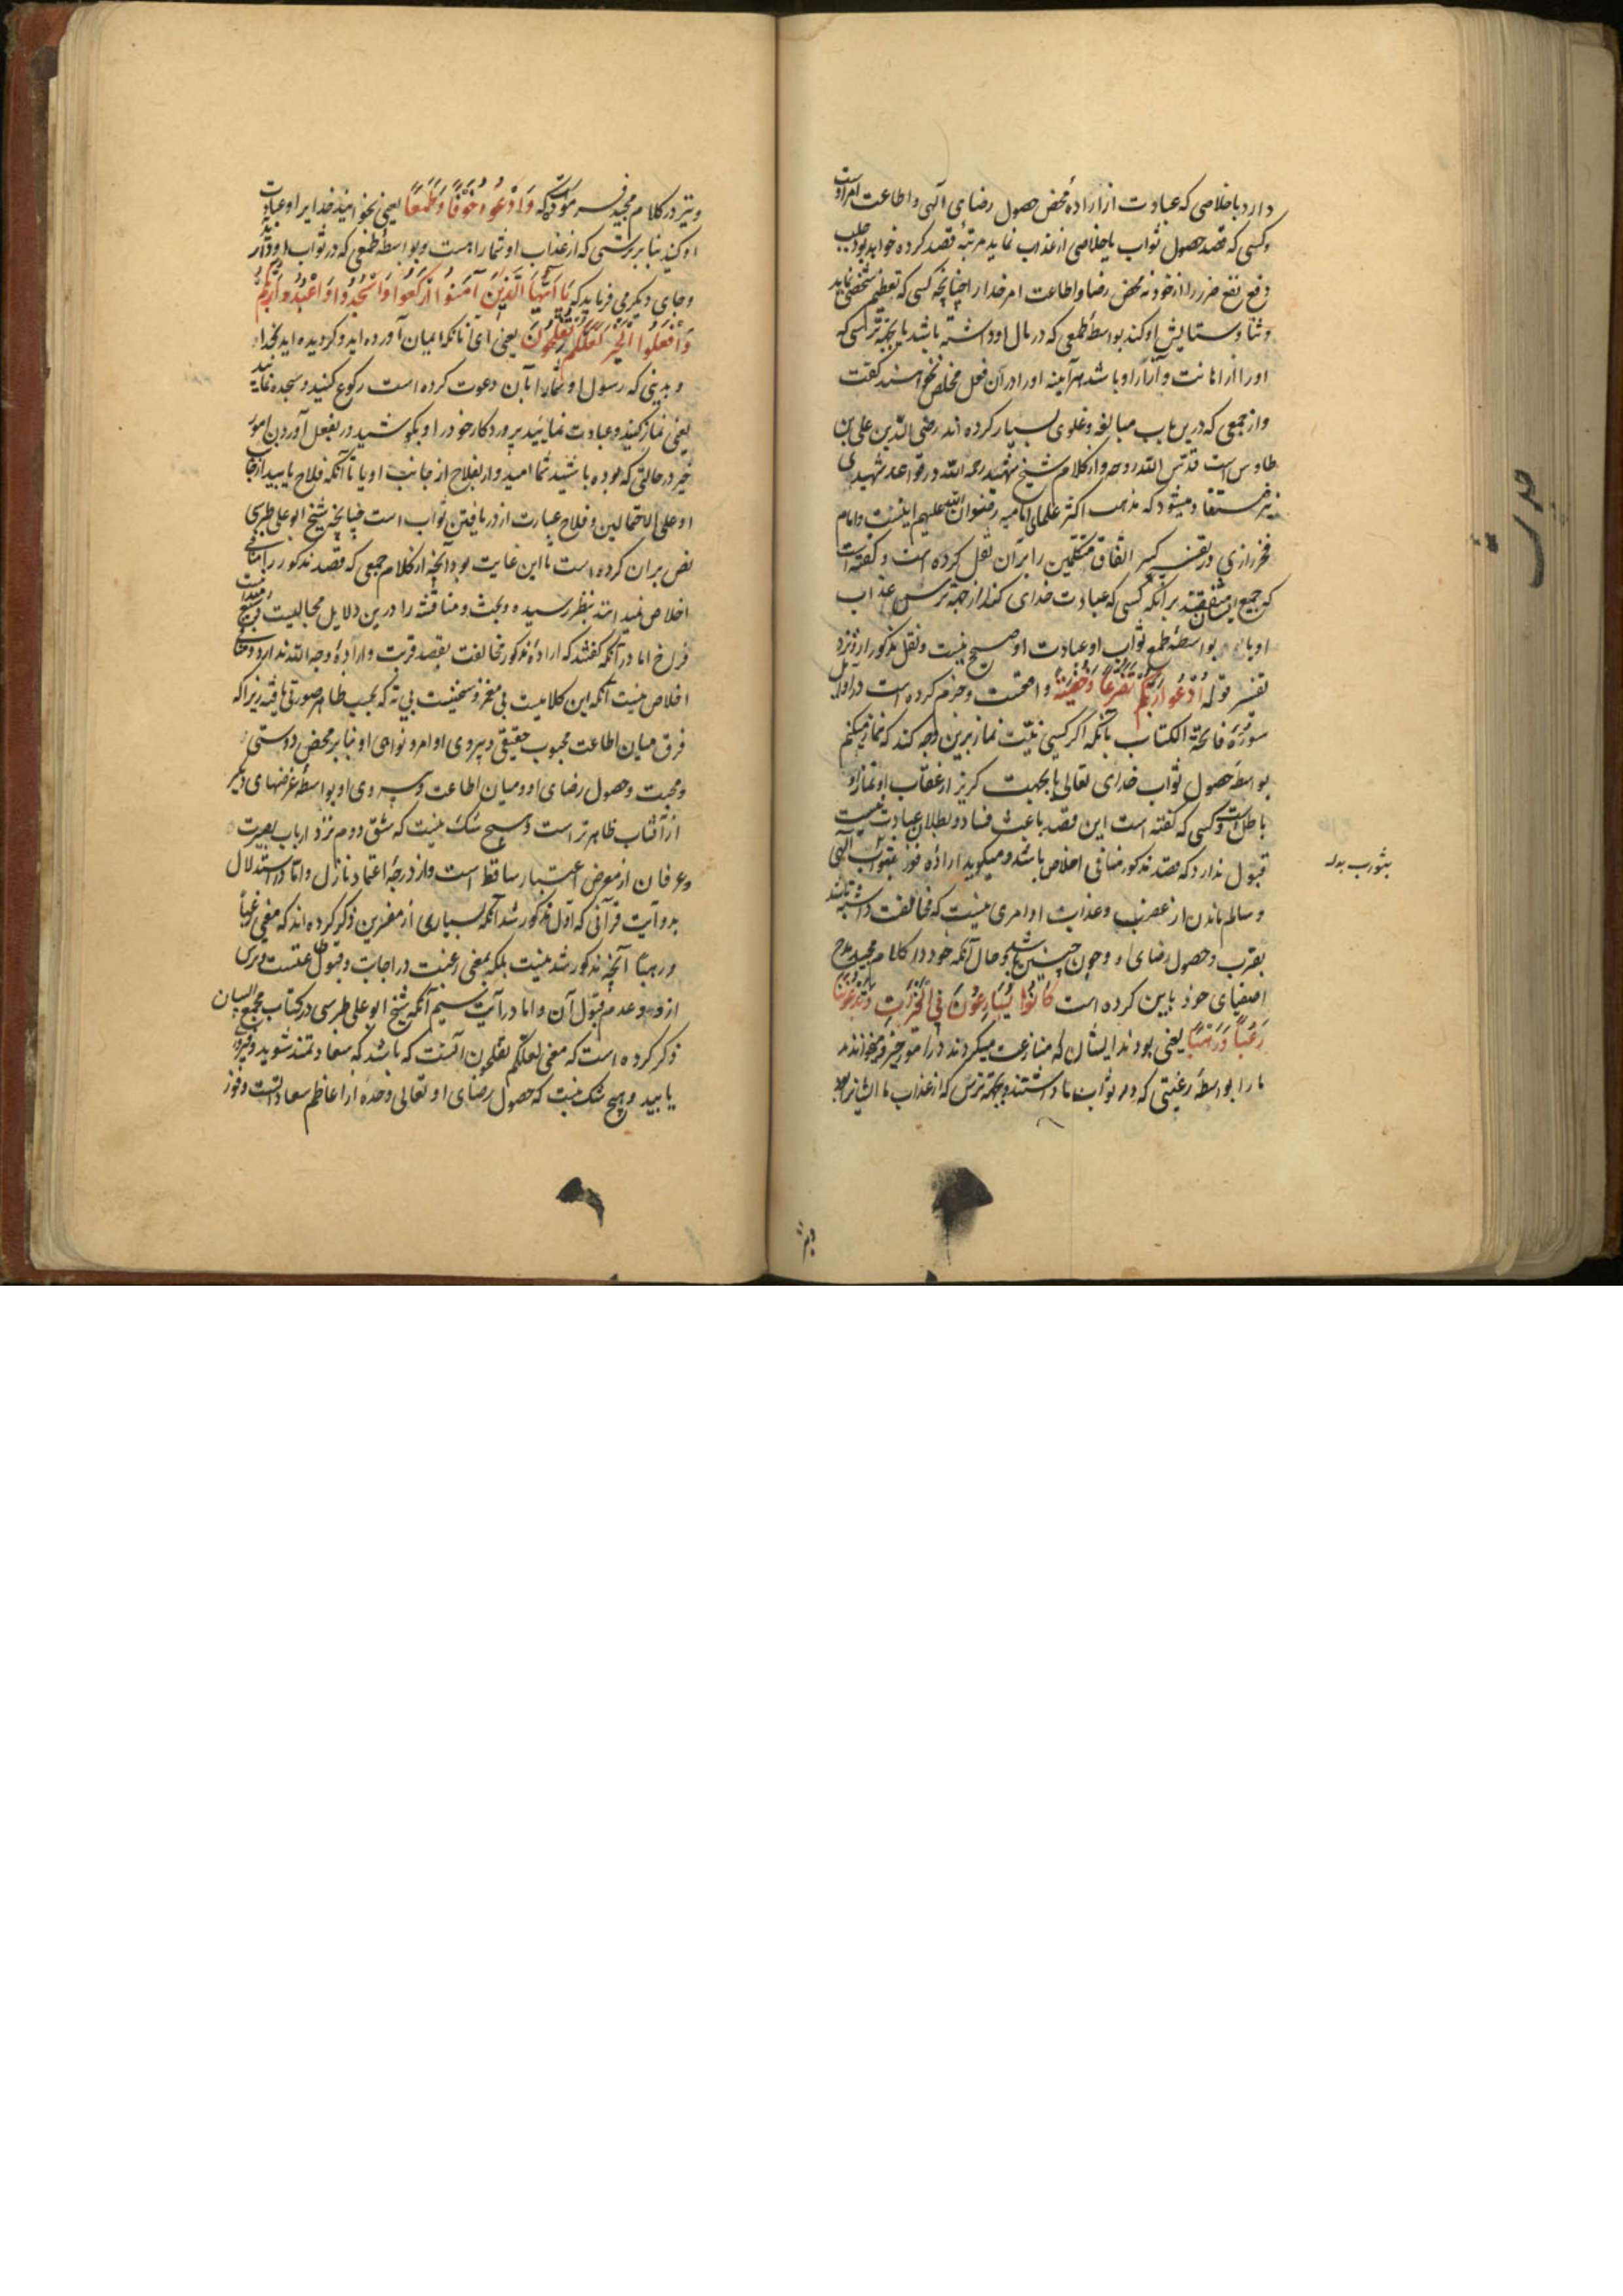 دارد باخلاصی که عبادت از اراده محض حصول رضای آلهی و اطاعت امر اوست
و کسی که قصد حصول ثواب یا خلاصی از عذاب نماید مرتبهٔ قصد کرده خواهد بود جلب
و دفع ضرر را از خود نه محض رضا و اطاعت امر خدا را چنانچه کسی که تعظیم شخصی نماید
و ثنا و ستایش او کند بواسطهٔ طمعی که در مال او داشته باشد یا بجهة ترسی که
او را از اهانت و آزار او باشد هرآینه او را در آن فعل مخلص نخواهند گفت
و از جمعی که درین باب مبالغه و غلوی بسیار کرده اند رضی الدّین علی بن
طاوس است قدّس اللّه روحه و از کلام شیخ شهید رحمه اللّه در قواعد شهیدی
نیز مستفاد میشود که مذهب اکثر علمای امامیه رضوان اللّه علیهم اینست و امام
فخر رازی در تفسیر کبیر اتفاق متکلمین را بر آن نقل کرده است و گفته است
که جمیع ایشان متفقند بر آنکه کسی که عبادت خدای کند از جهة ترس عذاب
او یا بواسطهٔ طمع ثواب او عبادت او صحیح نیست و نقل مذکور را نزد
تفسیر قوله اُدْعُوا رَبَّكُمْ تَضَرُّعًا وَخُفْيَةً و جزم کرده است در اوایل
سورهٔ فاتحة الکتاب بآنکه اگر کسی نیّت نماز برین وجه کند که نماز میکنم
بواسطهٔ حصول ثواب خدای تعالی یا بجهت گریز از عقاب او نماز او
باطل است و کسی که گفته است این قصد باعث فساد و بطلان عبادت نیست
قبول ندارد که قصد مذکور منافی اخلاص باشد و میگوید اراده فوز بثواب آلهی
و سالم ماندن از غضب و عذاب او امری نیست که مخالفت داشته باشد
بقرب و حصول رضای او و چون چنین باشد و حال آنکه خود در کلام مجید مدح
اصفیای خود باین کرده است كَانُوا يُسَارِعُونَ فِي الْخَيْرَاتِ وَيَدْعُونَنَا
رَغَبًا وَرَهَبًا یعنی بودند ایشان که مسارعت میکردند در امور خیر و میخواندند
ما را بواسطهٔ رغبتی که در ثواب ما داشتند و بجهة ترس که از عذاب ما ایشانرا بود
و نیز در کلام مجید فرموده که وَادْعُوهُ خَوْفًا وَطَمَعًا یعنی بخوانید خدایرا و عبادت
او کنید بنا بر ترسی که از عذاب او شما را هست و بواسطهٔ طمعی که در ثواب او دارید
و جای دیگر می فرماید که يَا أَيُّهَا الَّذِينَ آمَنُوا ارْكَعُوا وَاسْجُدُوا وَاعْبُدُوا رَبَّكُمْ
وَافْعَلُوا الْخَيْرَ لَعَلَّكُمْ تُفْلِحُونَ یعنی ای آنانکه ایمان آورده اید و گرویده اید بخدا
و بدینی که رسول او شما را بآن دعوت کرده است رکوع کنید و سجده نمایید
یعنی نماز کنید و عبادت نمایید پروردگار خود را و بکوشید در بفعل آوردن امور
خیر در حالتی که بوده باشید شما امیدوار بفلاح از جانب او یا تا آنکه فلاح یابید از جانب
او علی الاحتمالین و فلاح عبارت از دریافتن ثواب است چنانچه شیخ ابو علی طبرسی
نص بر آن کرده است تا این غایت بود آنچه از کلام جمعی که قصد مذکور را منافی
اخلاص نمیدانند بنظر رسیده و بحث و مناقشه را درین دلایل مجالیست
فراخ اما در آنکه گفتند که اراده مذکور مخالفت بقصد قربت و ارادهٔ وجه اللّه ندارد و منافی
اخلاص نیست آنکه این کلامیست بی مغز و سخنیست بی ته که بحسب ظاهر صورتی یافته زیرا که
فرق میان اطاعت محبوب حقیقی و پیروی اوامر و نواهی او بنا بر محض دوستی
و محبت و حصول رضای او و میان اطاعت و پیروی او بواسطهٔ غرضهای دیگر
از آفتاب ظاهر تر است و هیچ شک نیست که شق دوم نزد ارباب بصیرت
و عرفان از معرض اعتبار ساقط است و از درجهٔ اعتماد نازل و اما در استدلال
بدو آیت قرآنی که اول مذکور شد آنکه بسیاری از مفسرین ذکر کرده اند که معنی رغباً
و رهباً آنچه مذکور شد نیست بلکه بمعنی رغبت در اجابت و قبول طاعتست و ترس
از رد و عدم قبول آن و اما در آیت سیم آنکه شیخ ابو علی طبرسی در کتاب مجمع البیان
ذکر کرده است که معنی لعلّکم تفلحون آنست که باشد که سعادتمند شوید و فیروزی
یابید و هیچ شک نیست که حصول رضای او تعالی وحده از اعاظم سعاداتست و فوز